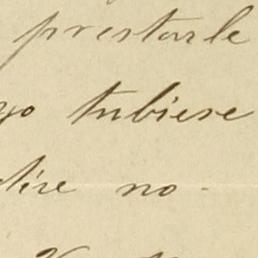 prestarle
yo tubiese
tire no-